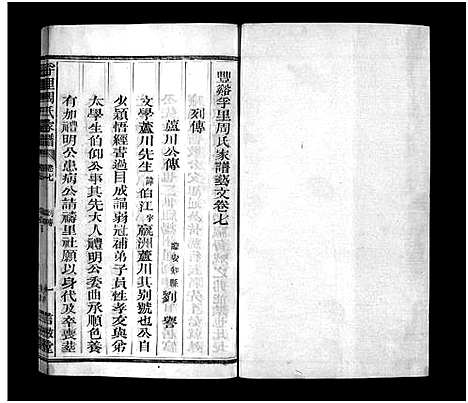 豐谿孚里周氏家譜藝文卷七
列傳
蘆川公傳
劉謩
文學蘆川先生諱伯江字瀛洲蘆川其別號也公自
少穎悟經書過目成誦弱冠補弟子員性孝友與弟
太學生伯仰公事其先大人禮明公委曲承順色養
有加禮明公患病公請禱里社願以身代及卒喪塟
孚里周氏家譜
卷七
一